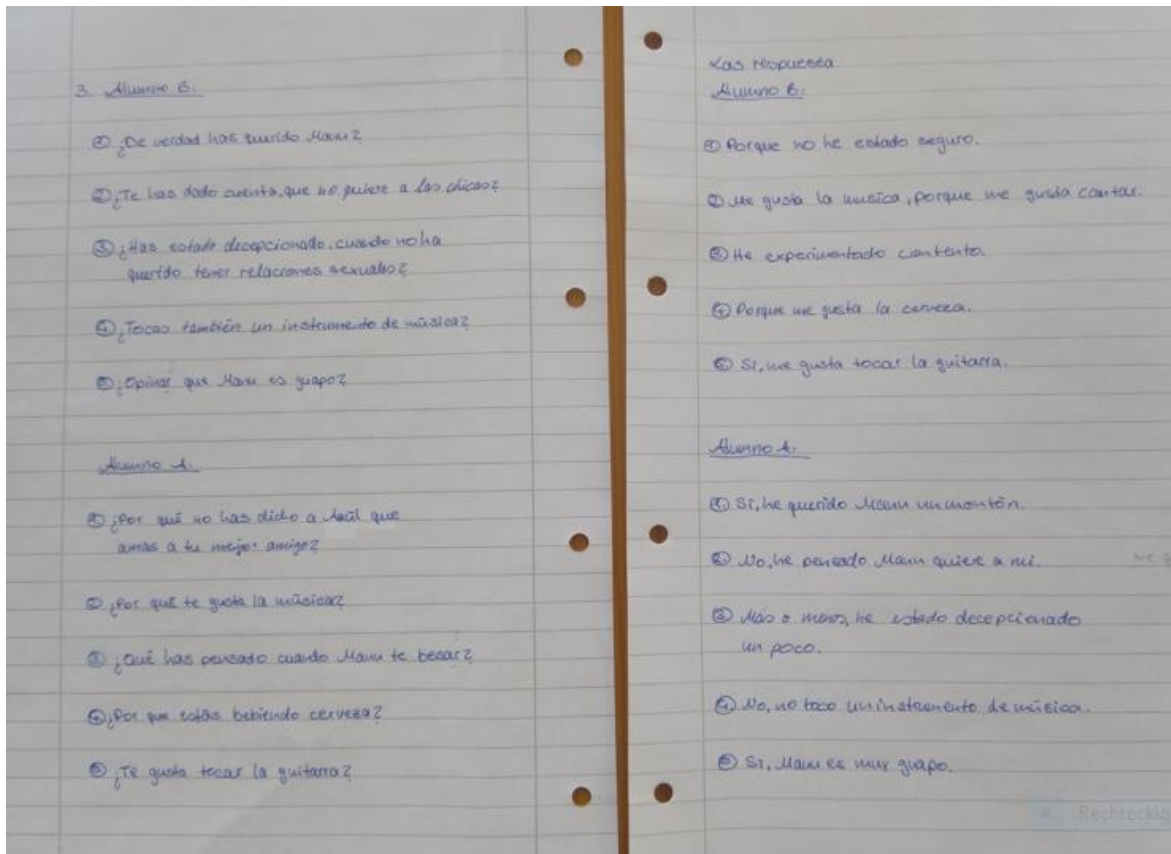 3. Alumno B:
① ¿De verdad has querido Manu?
② ¿Te has dado cuenta, que no quiere a las chicas?
③ ¿Has estado decepcionado, cuando no ha
querido tener relaciones sexuales?
④ ¿Tocas también un instrumento de música?
⑤ ¿Opinas que Manu es guapo?
Alumno A:
① ¿Por qué no has dicho a que
amas a tu mejor amigo?
② ¿Por qué te gusta la música?
③ ¿Qué has pensado cuando Manu te besar?
④ ¿Por que estás bebiendo cerveza?
⑤ ¿Te gusta tocar la guitarra?
Las respuesta
Alumno B:
① Porque no he estado seguro.
② Me gusta la musica, porque me gusta cantar.
③ He experimentado contento.
④ Porque me gusta la cerveza.
⑤ Si, me gusta tocar la guitarra.
Alumno A:
① Si, he querido Manu un montón.
② No, he pensado Manu quiere a mi.
③ Más o menos, he estado decepcionado
un poco.
④ No, no toco un instrumento de música.
⑤ Si, Manu es muy guapo.